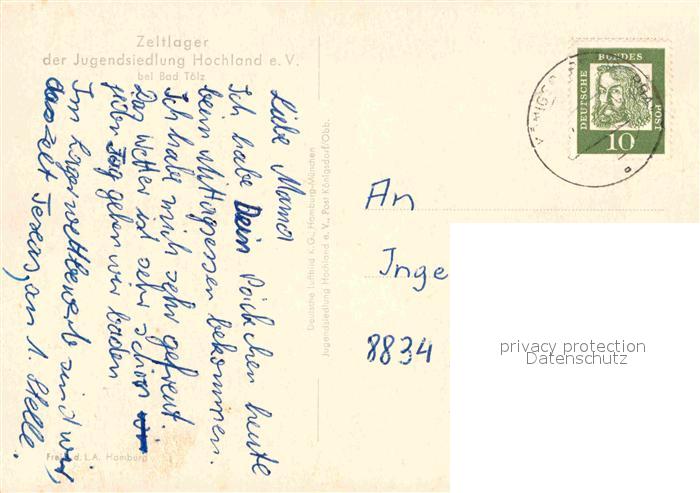 Zeltlager
der Jugendsiedlung Hochland e. V.
bei Bad Tölz
Liebe Mama
Ich habe Dein Päckchen heute
beim Mittagessen bekommen.
Ich habe mich sehr gefreut.
Das Wetter ist sehr schön
jeden Tag gehen wir baden
Im Lagerwettbewerb sind wir,
das Zelt Texas, an 1. Stelle.
Deutsche Luftbild K.G., Hamburg-München
Jugendsiedlung Hochland e. V., Post Königsdorf/Obb.
d. L.A. Hamburg
DEUTSCHE BUNDES POST
10
An
Inge
8834
privacy protection
Datenschutz